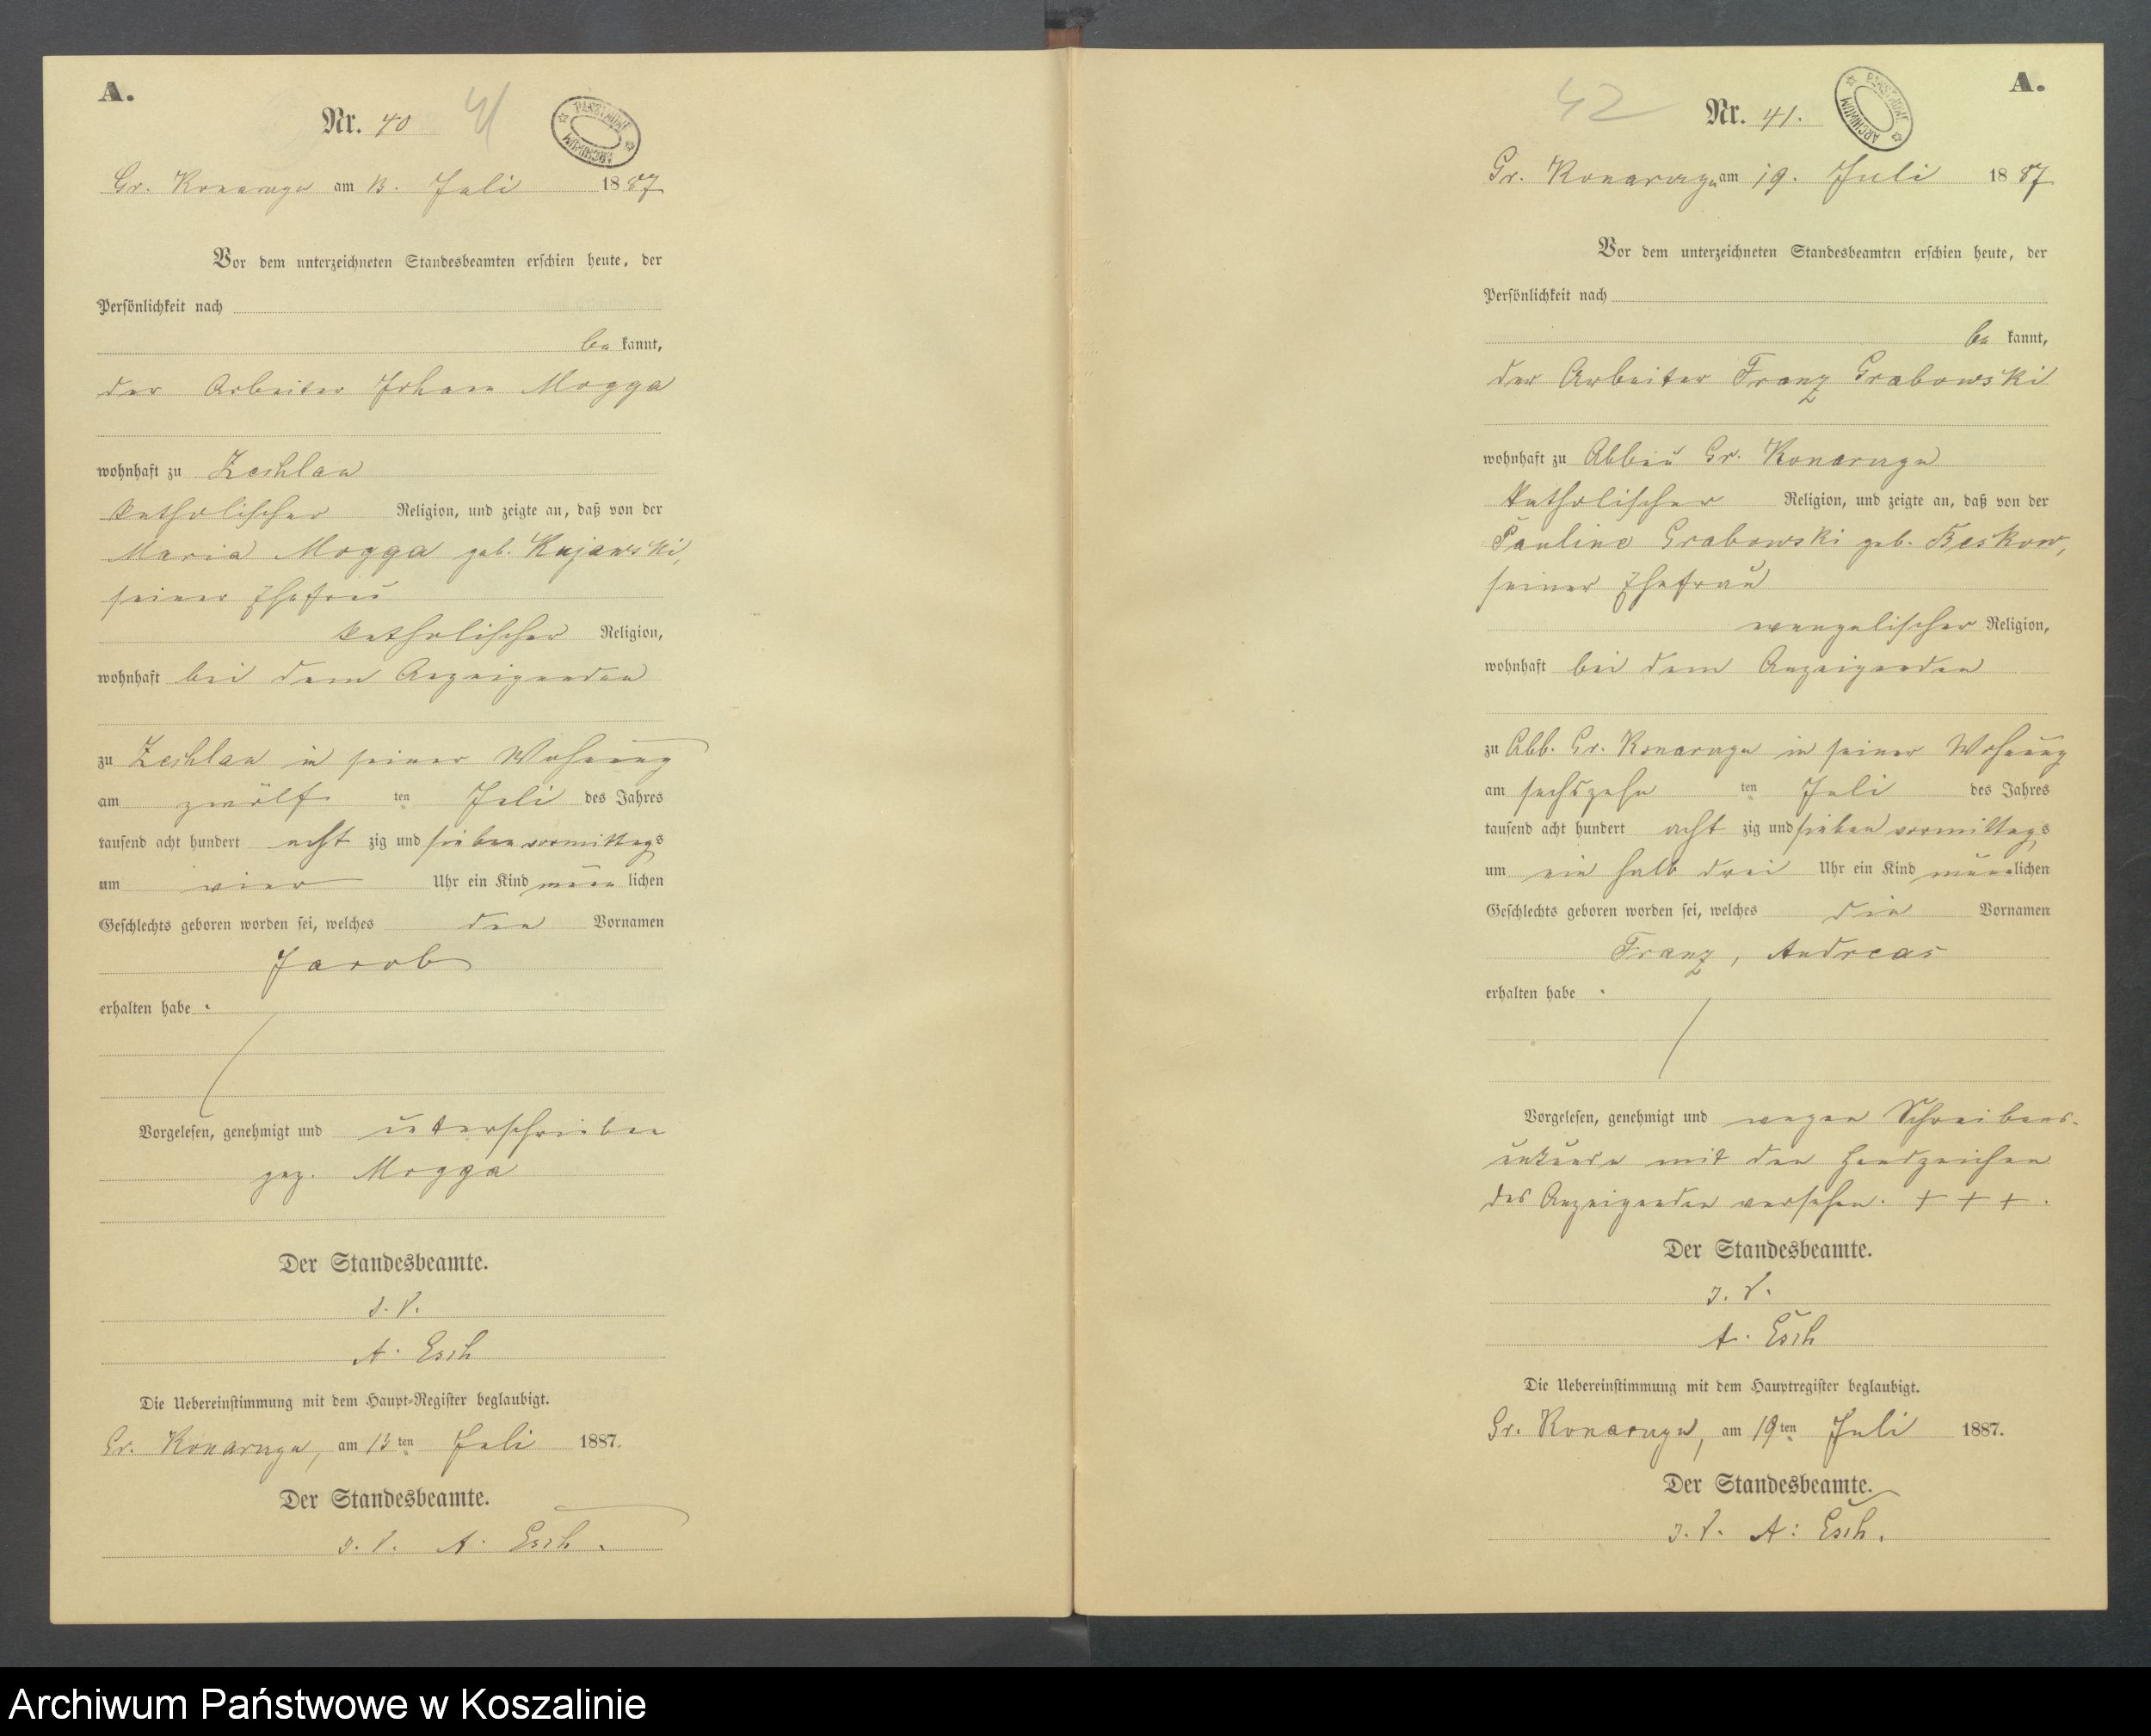 A.
Nr. 40
41
ARCHIWUM PAŃSTWOWE
Gr. Konarzyn am 13. Juli 1887
Vor dem unterzeichneten Standesbeamten erschien heute, der
Persönlichkeit nach
be kannt,
der Arbeiter Johann Mogga
wohnhaft zu Zechlau
katholischer Religion, und zeigte an, daß von der
Maria Mogga geb. Kujawski,
seiner Ehefrau
katholischer Religion,
wohnhaft bei dem Anzeigenden
zu Zechlau in seiner Wohnung
am zwölf ten Juli des Jahres
tausend acht hundert acht zig und sieben vormittags
um vier Uhr ein Kind männ lichen
Geschlechts geboren worden sei, welches den Vornamen
Jacob
erhalten habe.
Vorgelesen, genehmigt und unterschrieben
gez. Mogga
Der Standesbeamte.
I. V.
A. Esch
Die Uebereinstimmung mit dem Haupt-Register beglaubigt.
Gr. Konarzyn, am 13ten Juli 1887.
Der Standesbeamte.
I. V. A. Esch.
A.
42
Nr. 41.
ARCHIWUM PAŃSTWOWE
Gr. Konarzyn am 19. Juli 1887
Vor dem unterzeichneten Standesbeamten erschien heute, der
Persönlichkeit nach
be kannt,
der Arbeiter Franz Grabowski
wohnhaft zu Abbau Gr. Konarzyn
katholischer Religion, und zeigte an, daß von der
Pauline Grabowski geb. Beskow,
seiner Ehefrau
evangelischer Religion,
wohnhaft bei dem Anzeigenden
zu Abb. Gr. Konarzyn in seiner Wohnung
am sechszehn ten Juli des Jahres
tausend acht hundert acht zig und sieben vormittags
um ein halb drei Uhr ein Kind männlichen
Geschlechts geboren worden sei, welches die Vornamen
Franz, Andreas
erhalten habe.
Vorgelesen, genehmigt und wegen Schreibens-
unkunde mit den Handzeichen
des Anzeigenden versehen. + + + .
Der Standesbeamte.
I. V.
A. Esch
Die Uebereinstimmung mit dem Hauptregister beglaubigt.
Gr. Konarzyn, am 19ten Juli 1887.
Der Standesbeamte.
I. V. A: Esch.
Archiwum Państwowe w Koszalinie